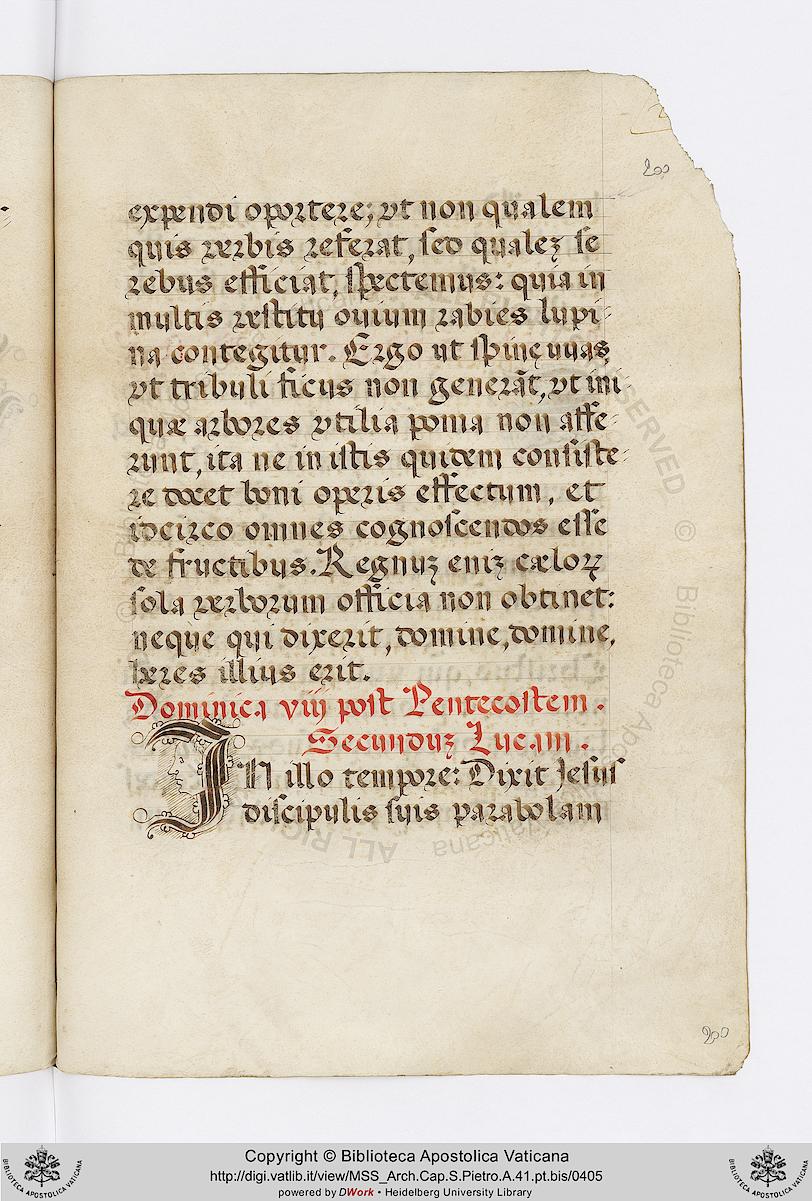 200
expendi oportere; vt non qualem
quis verbis referat, sed qualeȝ se
rebus efficiat, spectemus: quia in
multis vestitu ouium rabies lupi-
na contegitur. Ergo ut spinę uuas
vt tribuli ficus non generāt, vt ini-
quæ arbores vtilia poma non affe-
runt, ita ne in istis quidem consiste-
re docet boni operis effectum, et
idcirco omnes cognoscendos esse
de fructibus. Regnuȝ eniȝ cæloꝝ
sola verborum officia non obtinet:
neque qui dixerit, domine, domine,
hęres illius erit.
Dominica viij post Pentecostem.
Secunduȝ Lucam.
IN illo tempore: Dixit Jesus
discipulis suis parabolam
200
Copyright © Biblioteca Apostolica Vaticana
http://digi.vatlib.it/view/MSS_Arch.Cap.S.Pietro.A.41.pt.bis/0405
powered by DWork • Heidelberg University Library
BIBLIOTECA APOSTOLICA VATICANA
BIBLIOTECA APOSTOLICA VATICANA